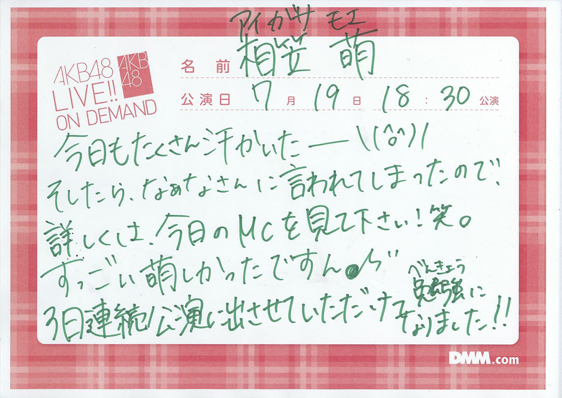 アイガサ モエ
AKB48
LIVE!!
ON DEMAND
AKB
48
名前 相笠 萌
公演日 7月 19日 18:30 公演
今日もたくさん汗かいたー\(^o^)/
そしたら、なぁなさんに言われてしまったので、
詳しくは、今日のMCを見て下さい!笑。
すっごい萌しかったですん
べんきょう
3日連続公演に出させていただけて勉強に
なりました!!
DMM.com